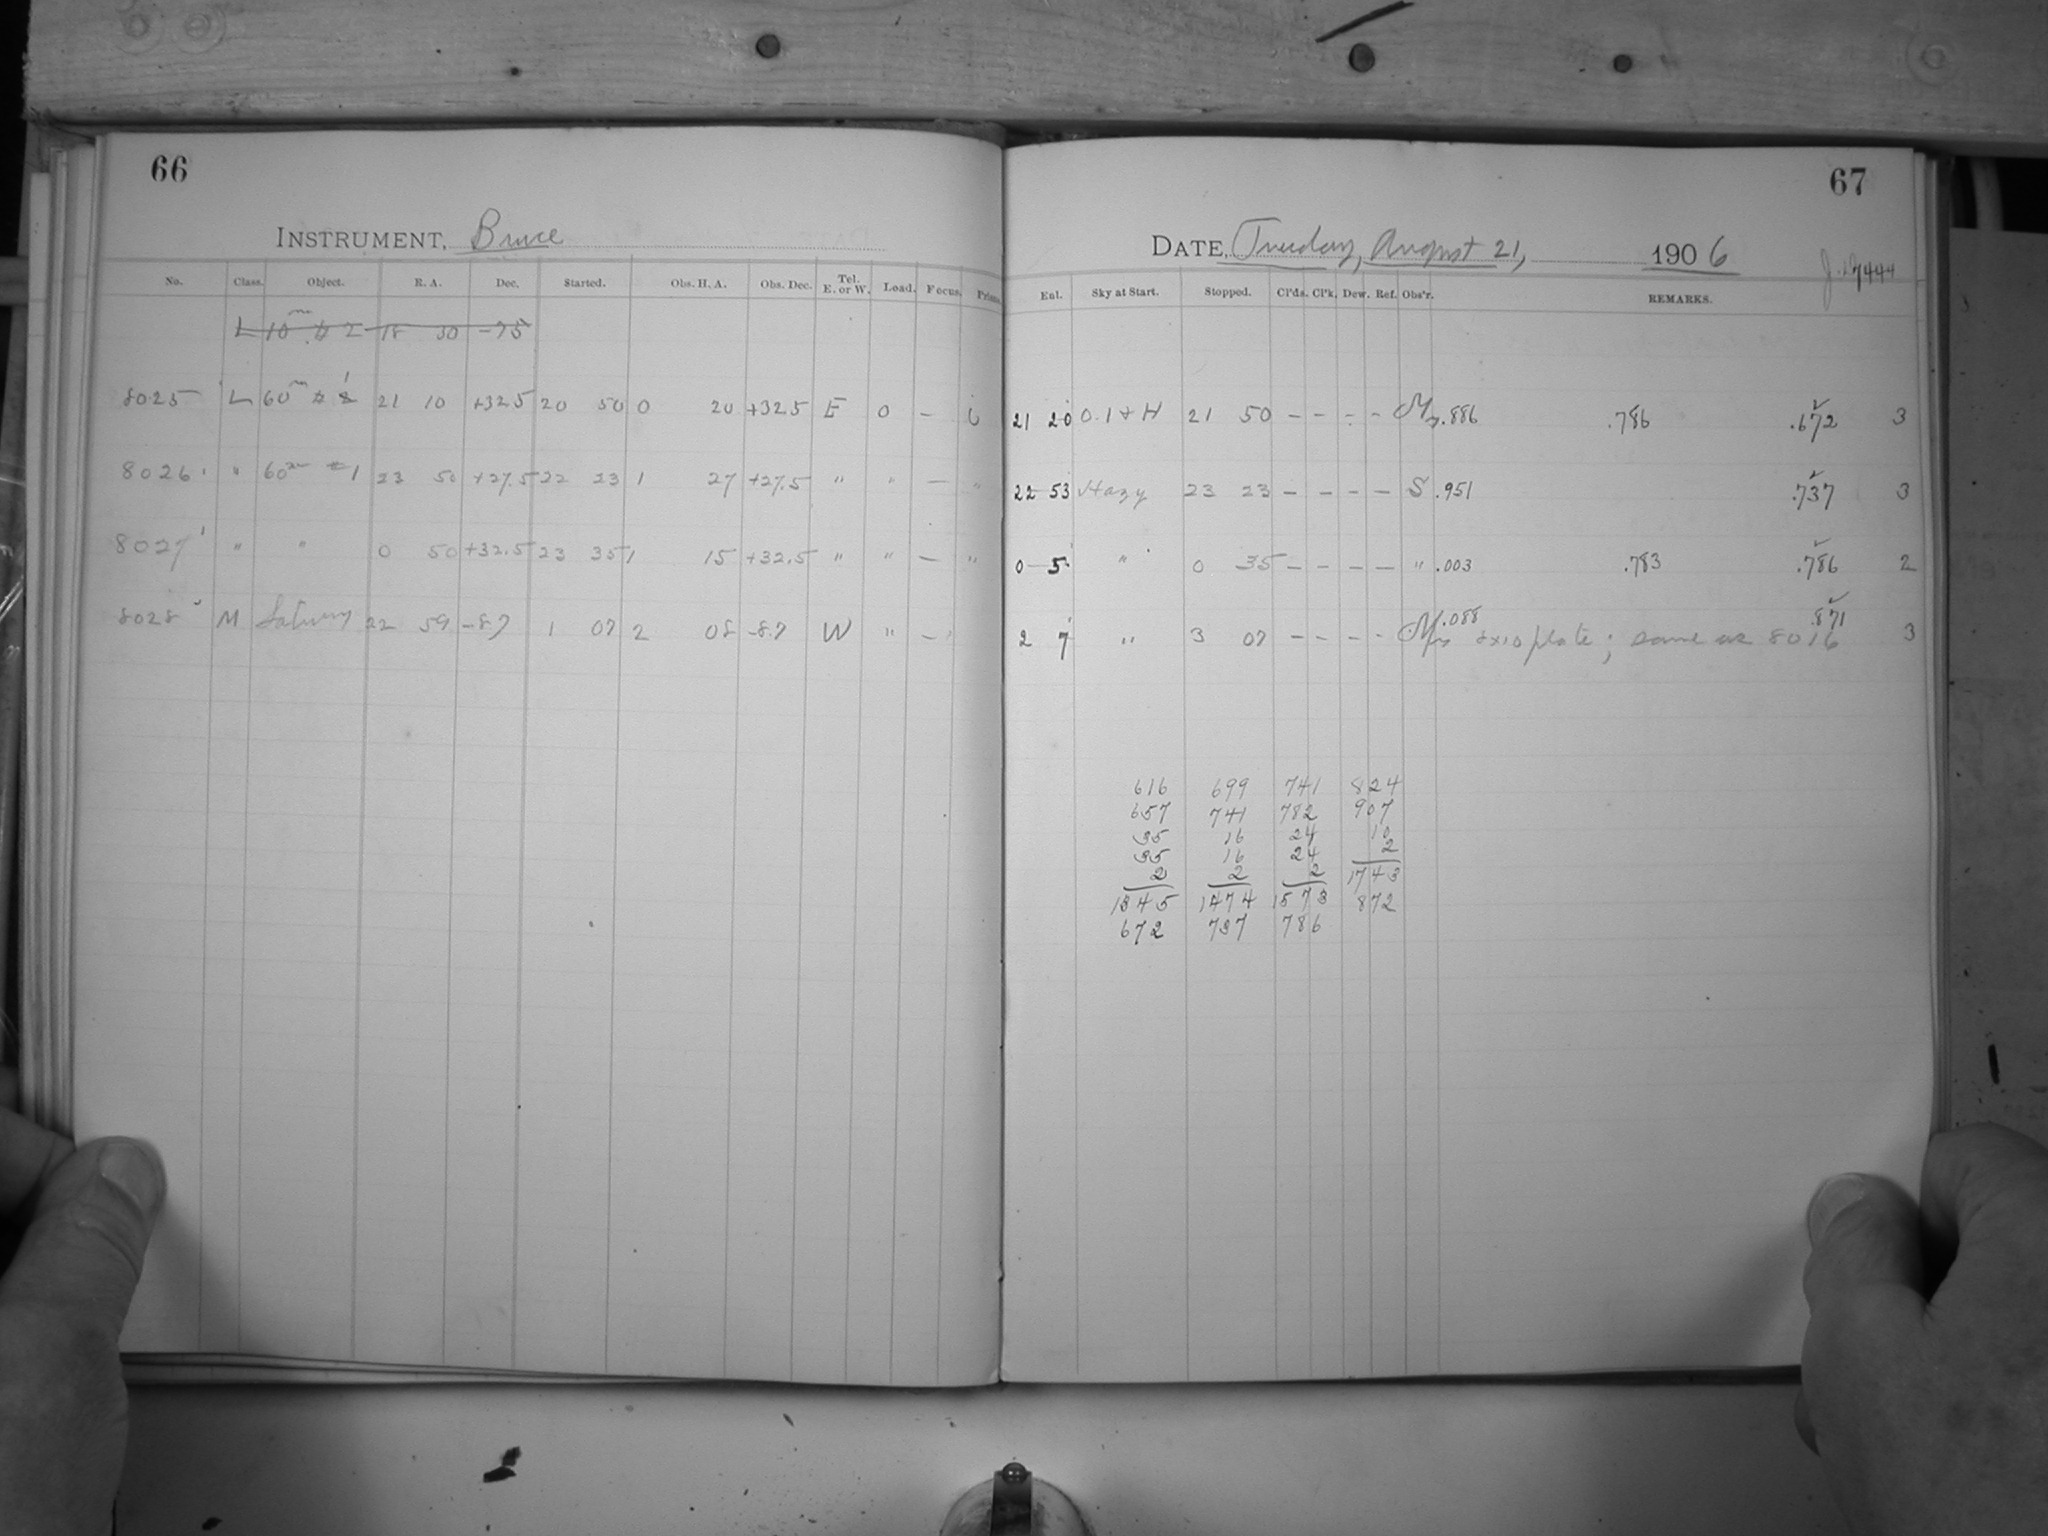 66
INSTRUMENT, Bruce
No. Class. Object. R. A. Dec. Started. Obs. H. A. Obs. Dec. Tel. E. or W. Load. Focus. Prism.
L 10m # 2 18 30 -75
8025 L 60m # 1 21 10 +32.5 20 50 0 20 +32.5 E 0 -
8026 " 60m #1 23 50 +27.5 22 23 1 27 +27.5 " " - "
8027 " " 0 50 +32.5 23 35 1 15 +32.5 " " - "
8028 M Saturn 22 59 -8.7 1 07 2 08 -8.7 W " -
67
DATE, Tuesday, August 21, 1906
Exl. Sky at Start. Stopped. Cl'ds. Cl'k. Dew. Ref. Obs'r. REMARKS.
21 20 0.1 + H 21 50 - - - - .886 .786 .672 3
22 53 Hazy 23 23 - - - - S .951 .737 3
0 5 " 0 35 - - - - " .003 .783 .786 2
2 7 " 3 07 - - - - .088 8x10 plate; same as 8016 .871 3
616 699 741 824
657 741 782 907
35 16 24 10
35 16 24 2
2 2 2 1743
1345 1474 1573 872
672 737 786